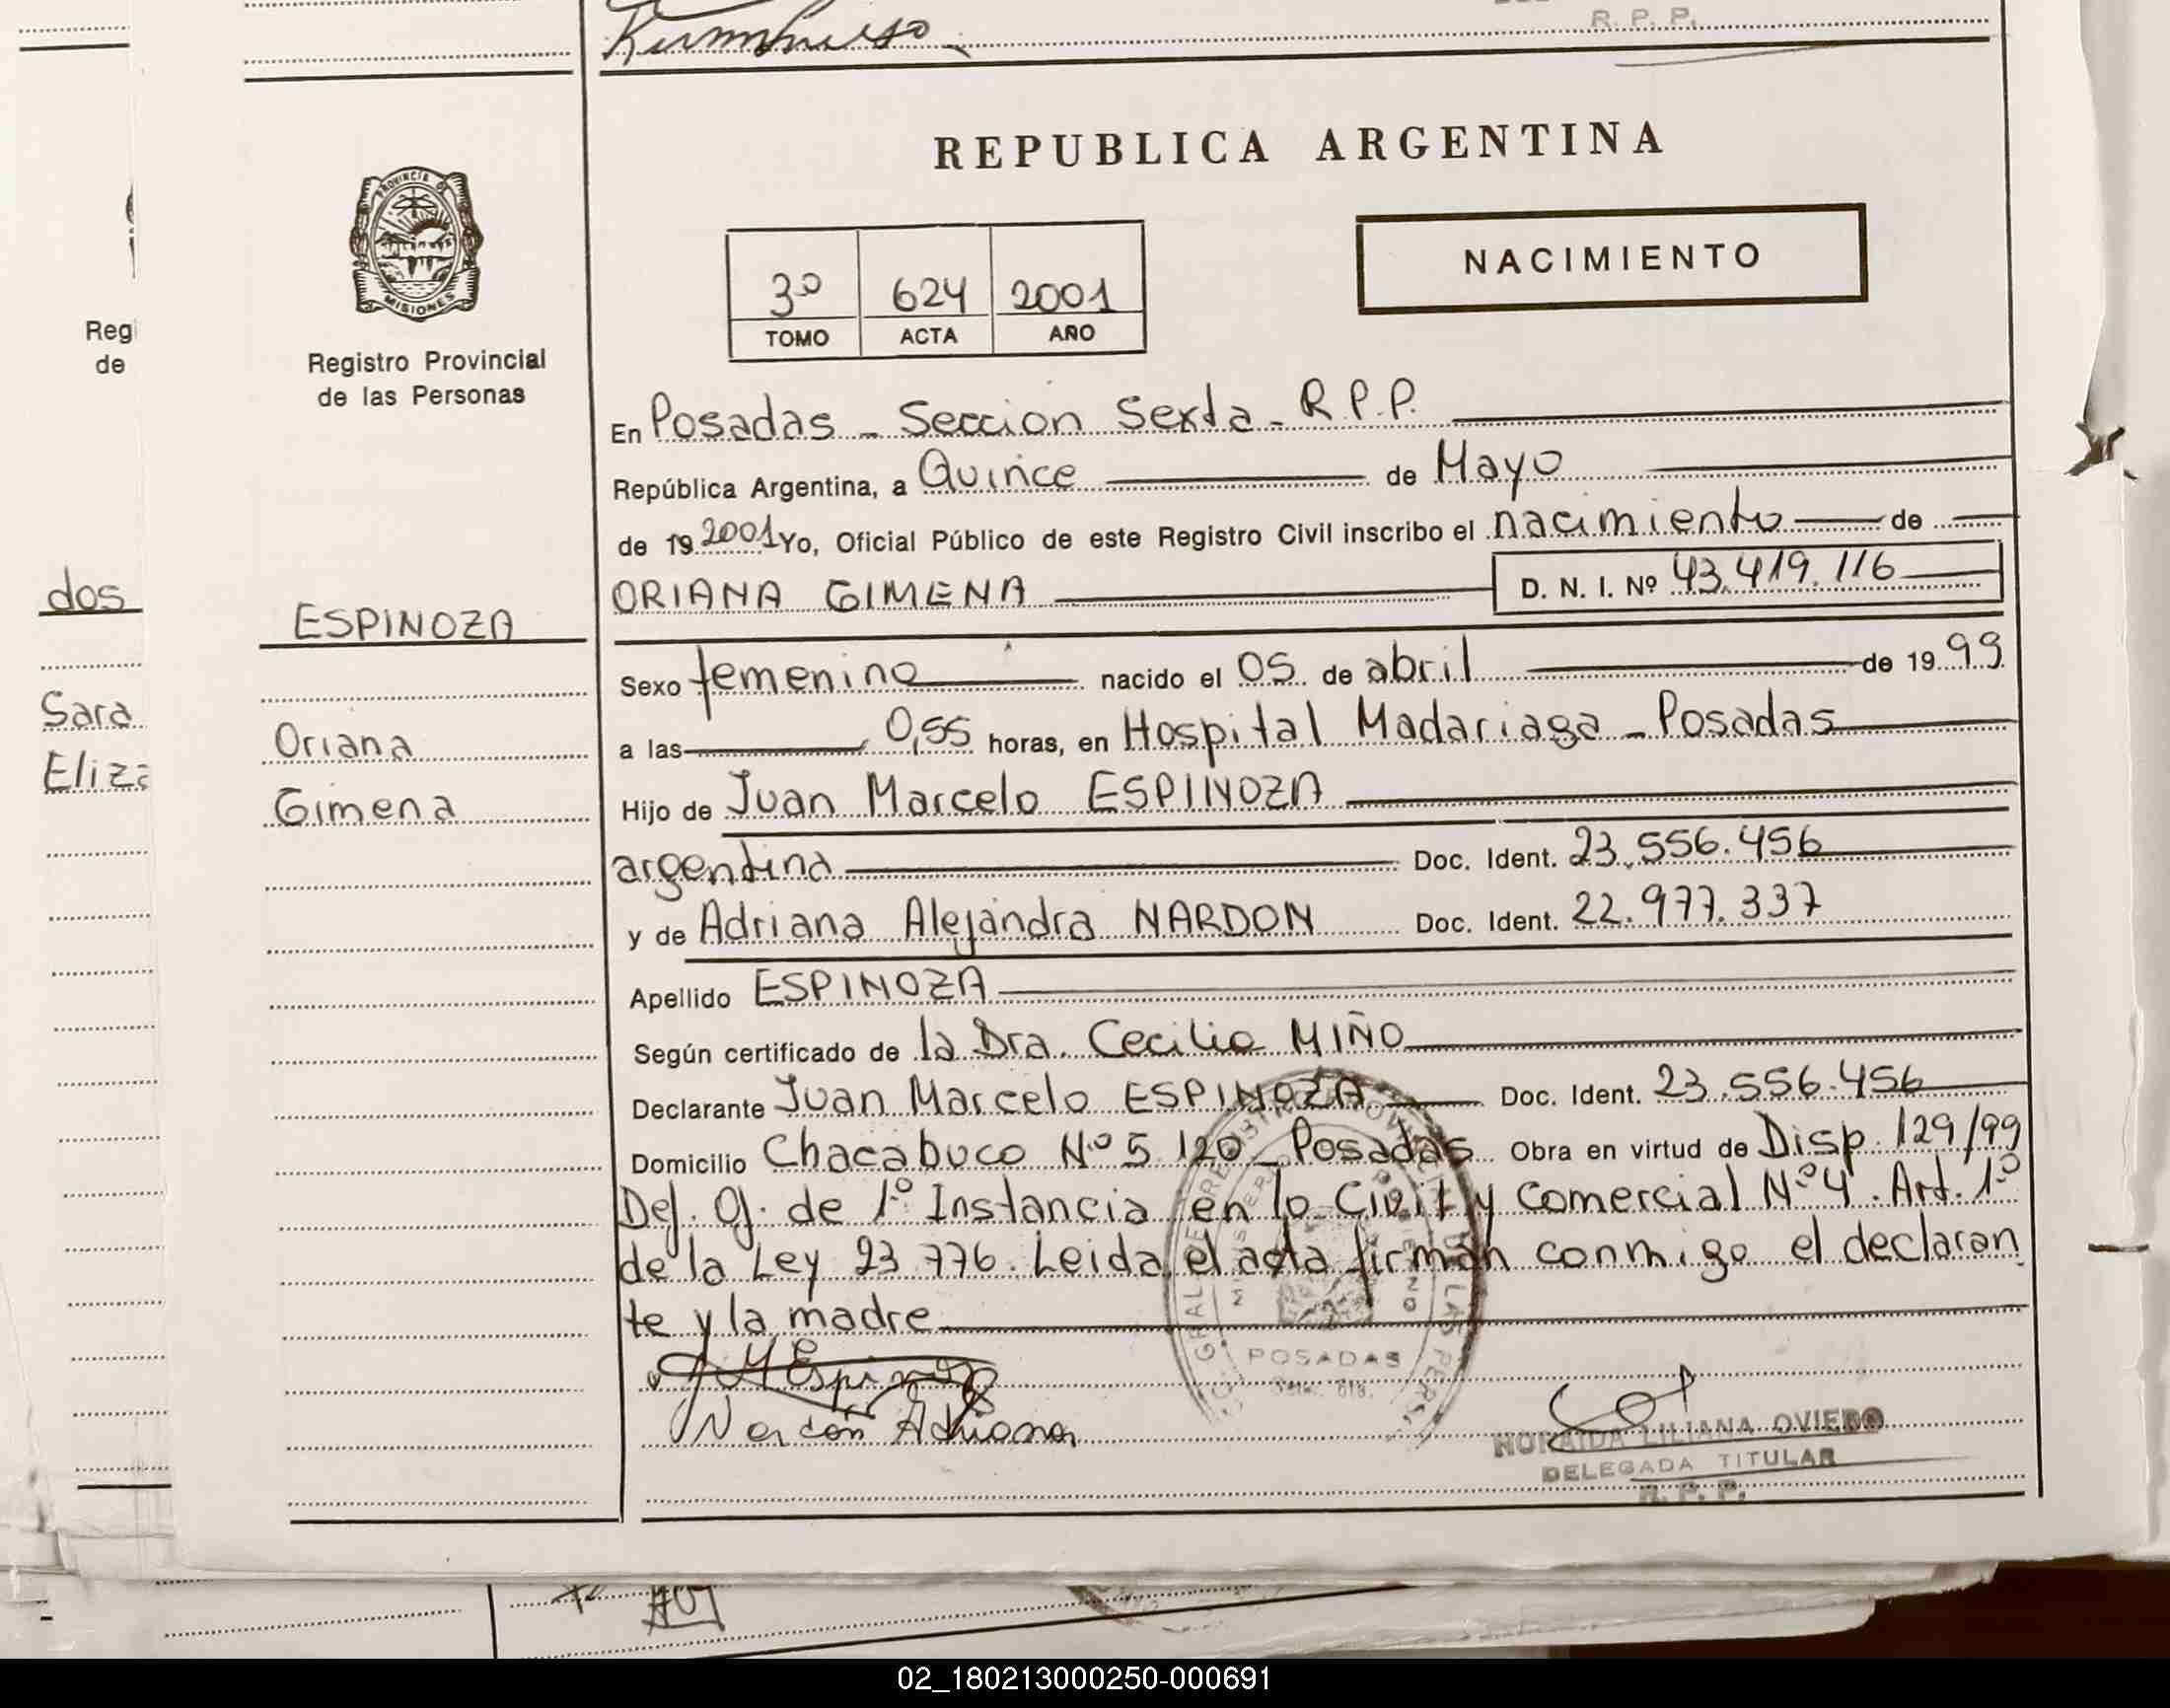 R. P. P.
REPUBLICA ARGENTINA
PROVINCIA DE
MISIONES
Registro Provincial
de las Personas
3º 624 2001
TOMO ACTA AÑO
NACIMIENTO
Regi
de
En Posadas - Seccion Sexta - R.P.P.
República Argentina, a Quince de Mayo
de 19 2001 Yo, Oficial Público de este Registro Civil inscribo el nacimiento de
ORIANA GIMENA D. N. I. Nº 43.419.116
dos
ESPINOZA
Sexo femenino nacido el 05 de abril de 1999
Sara
Oriana
a las 0,55 horas, en Hospital Madariaga - Posadas
Eliza
Gimena
Hijo de Juan Marcelo ESPINOZA
argentina Doc. Ident. 23.556.456
y de Adriana Alejandra NARDON Doc. Ident. 22.977.337
Apellido ESPINOZA
Según certificado de la Dra. Cecilia MIÑO
Declarante Juan Marcelo ESPINOZA Doc. Ident. 23.556.456
Domicilio Chacabuco Nº 5120 - Posadas Obra en virtud de Disp. 129/99
Def. Of. de 1º Instancia en lo Civil y Comercial Nº 4. Art. 1º
de la Ley 23776. Leida el acta firman conmigo el declaran
te y la madre
POSADAS
JMEspinoza
Nardon Adriana
NORAIDA LILIANA OVIEDO
DELEGADA TITULAR
R. P. P.
02_180213000250-000691